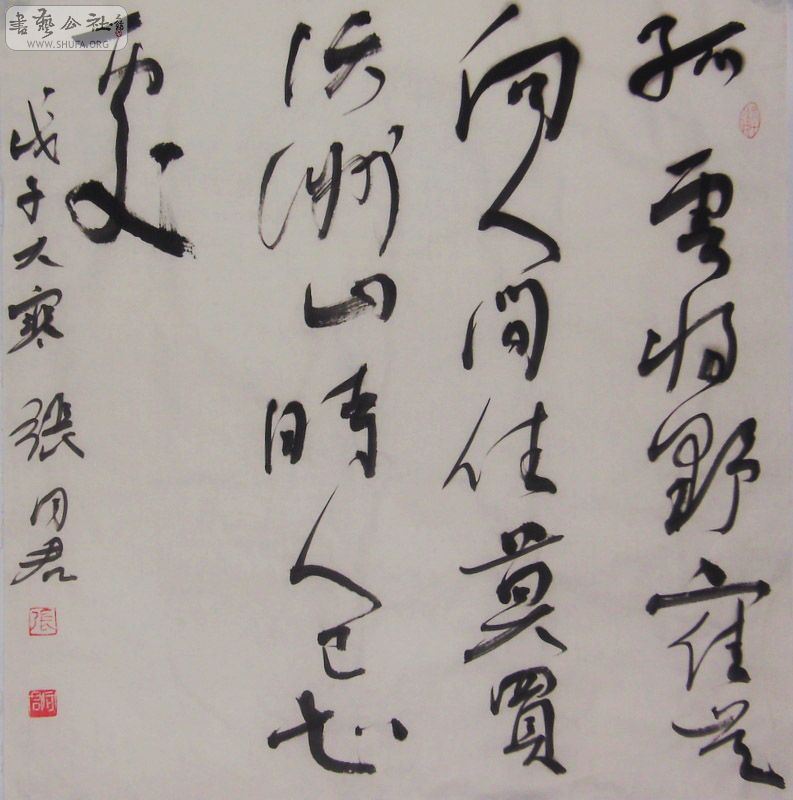 書藝公社
WWW.SHUFA.ORG
孤雲將野鶴豈
向人間住莫買
沃洲山時人已知
處
戊子大寒 張同君
張